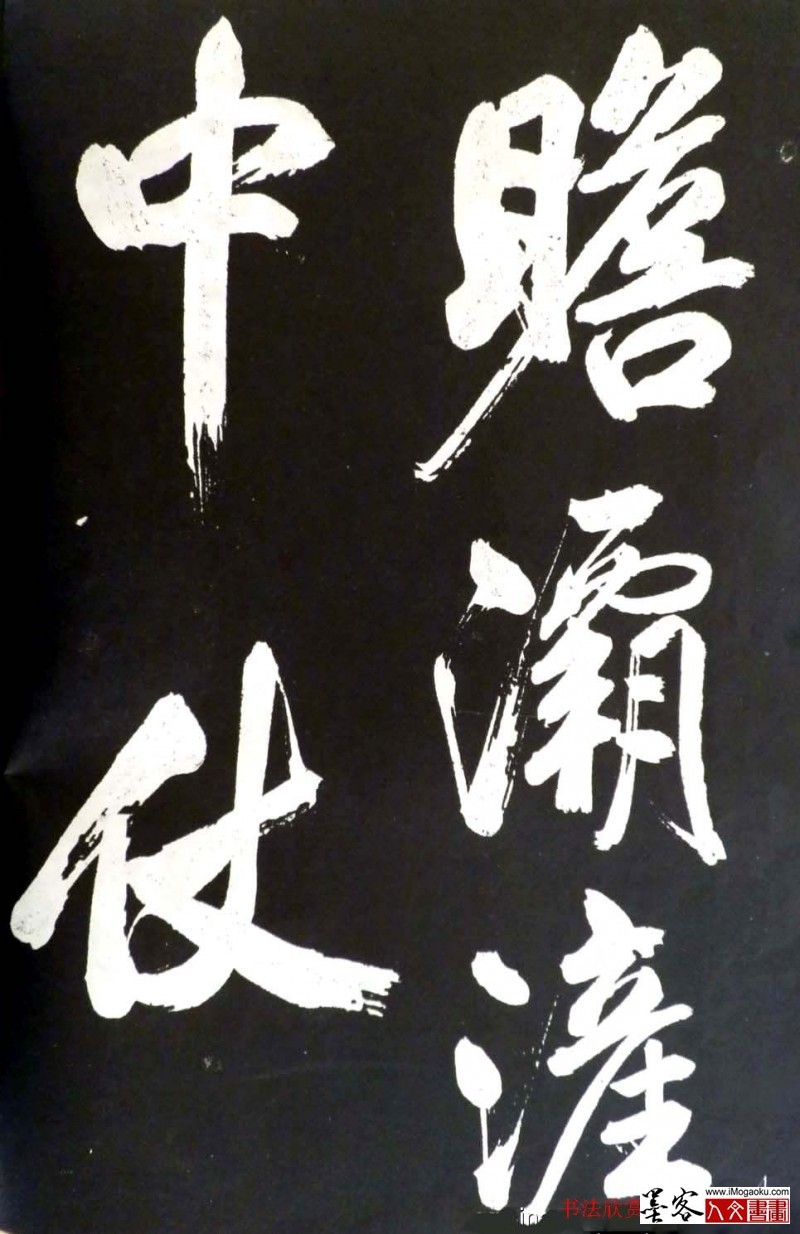 瞻灞滻
中仗
书法欣赏
墨客
www.iMogaoku.com
人文書畫